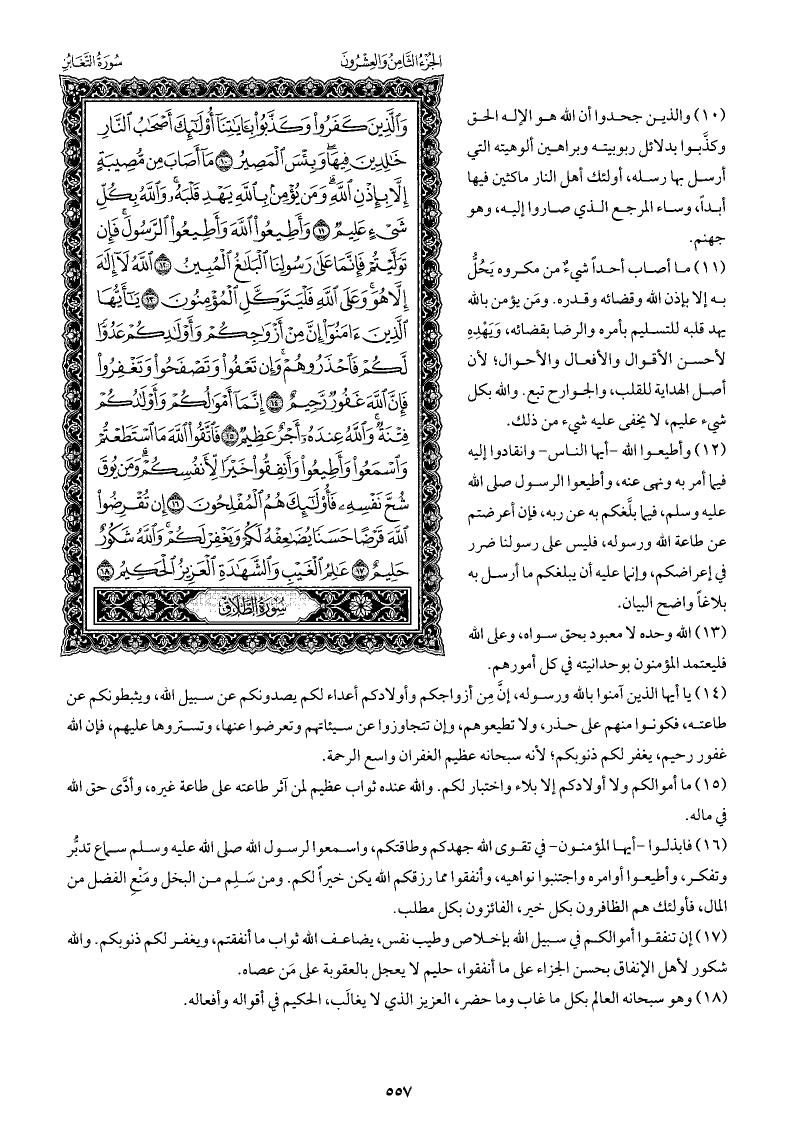 الجزء الثامن والعشرون
سورة التغابن
وَالَّذِينَ كَفَرُوا۟ وَكَذَّبُوا۟ بِـَٔايَـٰتِنَآ أُو۟لَـٰٓئِكَ أَصْحَـٰبُ النَّارِ
خَـٰلِدِينَ فِيهَا ۖ وَبِئْسَ الْمَصِيرُ ١٠ مَآ أَصَابَ مِن مُّصِيبَةٍ
إِلَّا بِإِذْنِ اللَّهِ ۗ وَمَن يُؤْمِنۢ بِاللَّهِ يَهْدِ قَلْبَهُۥ ۚ وَاللَّهُ بِكُلِّ
شَىْءٍ عَلِيمٌ ١١ وَأَطِيعُوا۟ اللَّهَ وَأَطِيعُوا۟ الرَّسُولَ ۚ فَإِن
تَوَلَّيْتُمْ فَإِنَّمَا عَلَىٰ رَسُولِنَا الْبَلَـٰغُ الْمُبِينُ ١٢ اللَّهُ لَآ إِلَـٰهَ
إِلَّا هُوَ ۚ وَعَلَى اللَّهِ فَلْيَتَوَكَّلِ الْمُؤْمِنُونَ ١٣ يَـٰٓأَيُّهَا
الَّذِينَ ءَامَنُوٓا۟ إِنَّ مِنْ أَزْوَٰجِكُمْ وَأَوْلَـٰدِكُمْ عَدُوًّا
لَّكُمْ فَاحْذَرُوهُمْ ۚ وَإِن تَعْفُوا۟ وَتَصْفَحُوا۟ وَتَغْفِرُوا۟
فَإِنَّ اللَّهَ غَفُورٌ رَّحِيمٌ ١٤ إِنَّمَآ أَمْوَٰلُكُمْ وَأَوْلَـٰدُكُمْ
فِتْنَةٌ ۚ وَاللَّهُ عِندَهُۥٓ أَجْرٌ عَظِيمٌ ١٥ فَاتَّقُوا۟ اللَّهَ مَا اسْتَطَعْتُمْ
وَاسْمَعُوا۟ وَأَطِيعُوا۟ وَأَنفِقُوا۟ خَيْرًا لِّأَنفُسِكُمْ ۗ وَمَن يُوقَ
شُحَّ نَفْسِهِۦ فَأُو۟لَـٰٓئِكَ هُمُ الْمُفْلِحُونَ ١٦ إِن تُقْرِضُوا۟
اللَّهَ قَرْضًا حَسَنًا يُضَـٰعِفْهُ لَكُمْ وَيَغْفِرْ لَكُمْ ۚ وَاللَّهُ شَكُورٌ
حَلِيمٌ ١٧ عَـٰلِمُ الْغَيْبِ وَالشَّهَـٰدَةِ الْعَزِيزُ الْحَكِيمُ ١٨
سورة الطلاق
(١٠) والذين جحدوا أن الله هو الإله الحق
وكذَّبوا بدلائل ربوبيته وبراهين ألوهيته التي
أرسل بها رسله، أولئك أهل النار ماكثين فيها
أبداً، وساء المرجع الذي صاروا إليه، وهو
جهنم.
(١١) ما أصاب أحداً شيءٌ من مكروه يَحُلُّ
به إلا بإذن الله وقضائه وقدره. ومَن يؤمن بالله
يهد قلبه للتسليم بأمره والرضا بقضائه، وَيَهْدِهِ
لأحسن الأقوال والأفعال والأحوال؛ لأن
أصل الهداية للقلب، والجوارح تبع. والله بكل
شيء عليم، لا يخفى عليه شيء من ذلك.
(١٢) وأطيعوا الله -أيها الناس- وانقادوا إليه
فيما أمر به ونهى عنه، وأطيعوا الرسول صلى الله
عليه وسلم، فيما بلَّغكم به عن ربه، فإن أعرضتم
عن طاعة الله ورسوله، فليس على رسولنا ضرر
في إعراضكم، وإنما عليه أن يبلغكم ما أرسل به
بلاغاً واضح البيان.
(١٣) الله وحده لا معبود بحق سواه، وعلى الله
فليعتمد المؤمنون بوحدانيته في كل أمورهم.
(١٤) يا أيها الذين آمنوا بالله ورسوله، إنَّ مِن أزواجكم وأولادكم أعداء لكم يصدونكم عن سبيل الله، ويثبطونكم عن
طاعته، فكونوا منهم على حذر، ولا تطيعوهم، وإن تتجاوزوا عن سيئاتهم وتعرضوا عنها، وتستروها عليهم، فإن الله
غفور رحيم، يغفر لكم ذنوبكم؛ لأنه سبحانه عظيم الغفران واسع الرحمة.
(١٥) ما أموالكم ولا أولادكم إلا بلاء واختبار لكم. والله عنده ثواب عظيم لمن آثر طاعته على طاعة غيره، وأدَّى حق الله
في ماله.
(١٦) فابذلوا -أيها المؤمنون- في تقوى الله جهدكم وطاقتكم، واسمعوا لرسول الله صلى الله عليه وسلم سماع تدبُّر
وتفكر، وأطيعوا أوامره واجتنبوا نواهيه، وأنفقوا مما رزقكم الله يكن خيراً لكم. ومن سَلِم من البخل ومَنْعِ الفضل من
المال، فأولئك هم الظافرون بكل خير، الفائزون بكل مطلب.
(١٧) إن تنفقوا أموالكم في سبيل الله بإخلاص وطيب نفس، يضاعف الله ثواب ما أنفقتم، ويغفر لكم ذنوبكم. والله
شكور لأهل الإنفاق بحسن الجزاء على ما أنفقوا، حليم لا يعجل بالعقوبة على مَن عصاه.
(١٨) وهو سبحانه العالم بكل ما غاب وما حضر، العزيز الذي لا يغالَب، الحكيم في أقواله وأفعاله.
٥٥٧